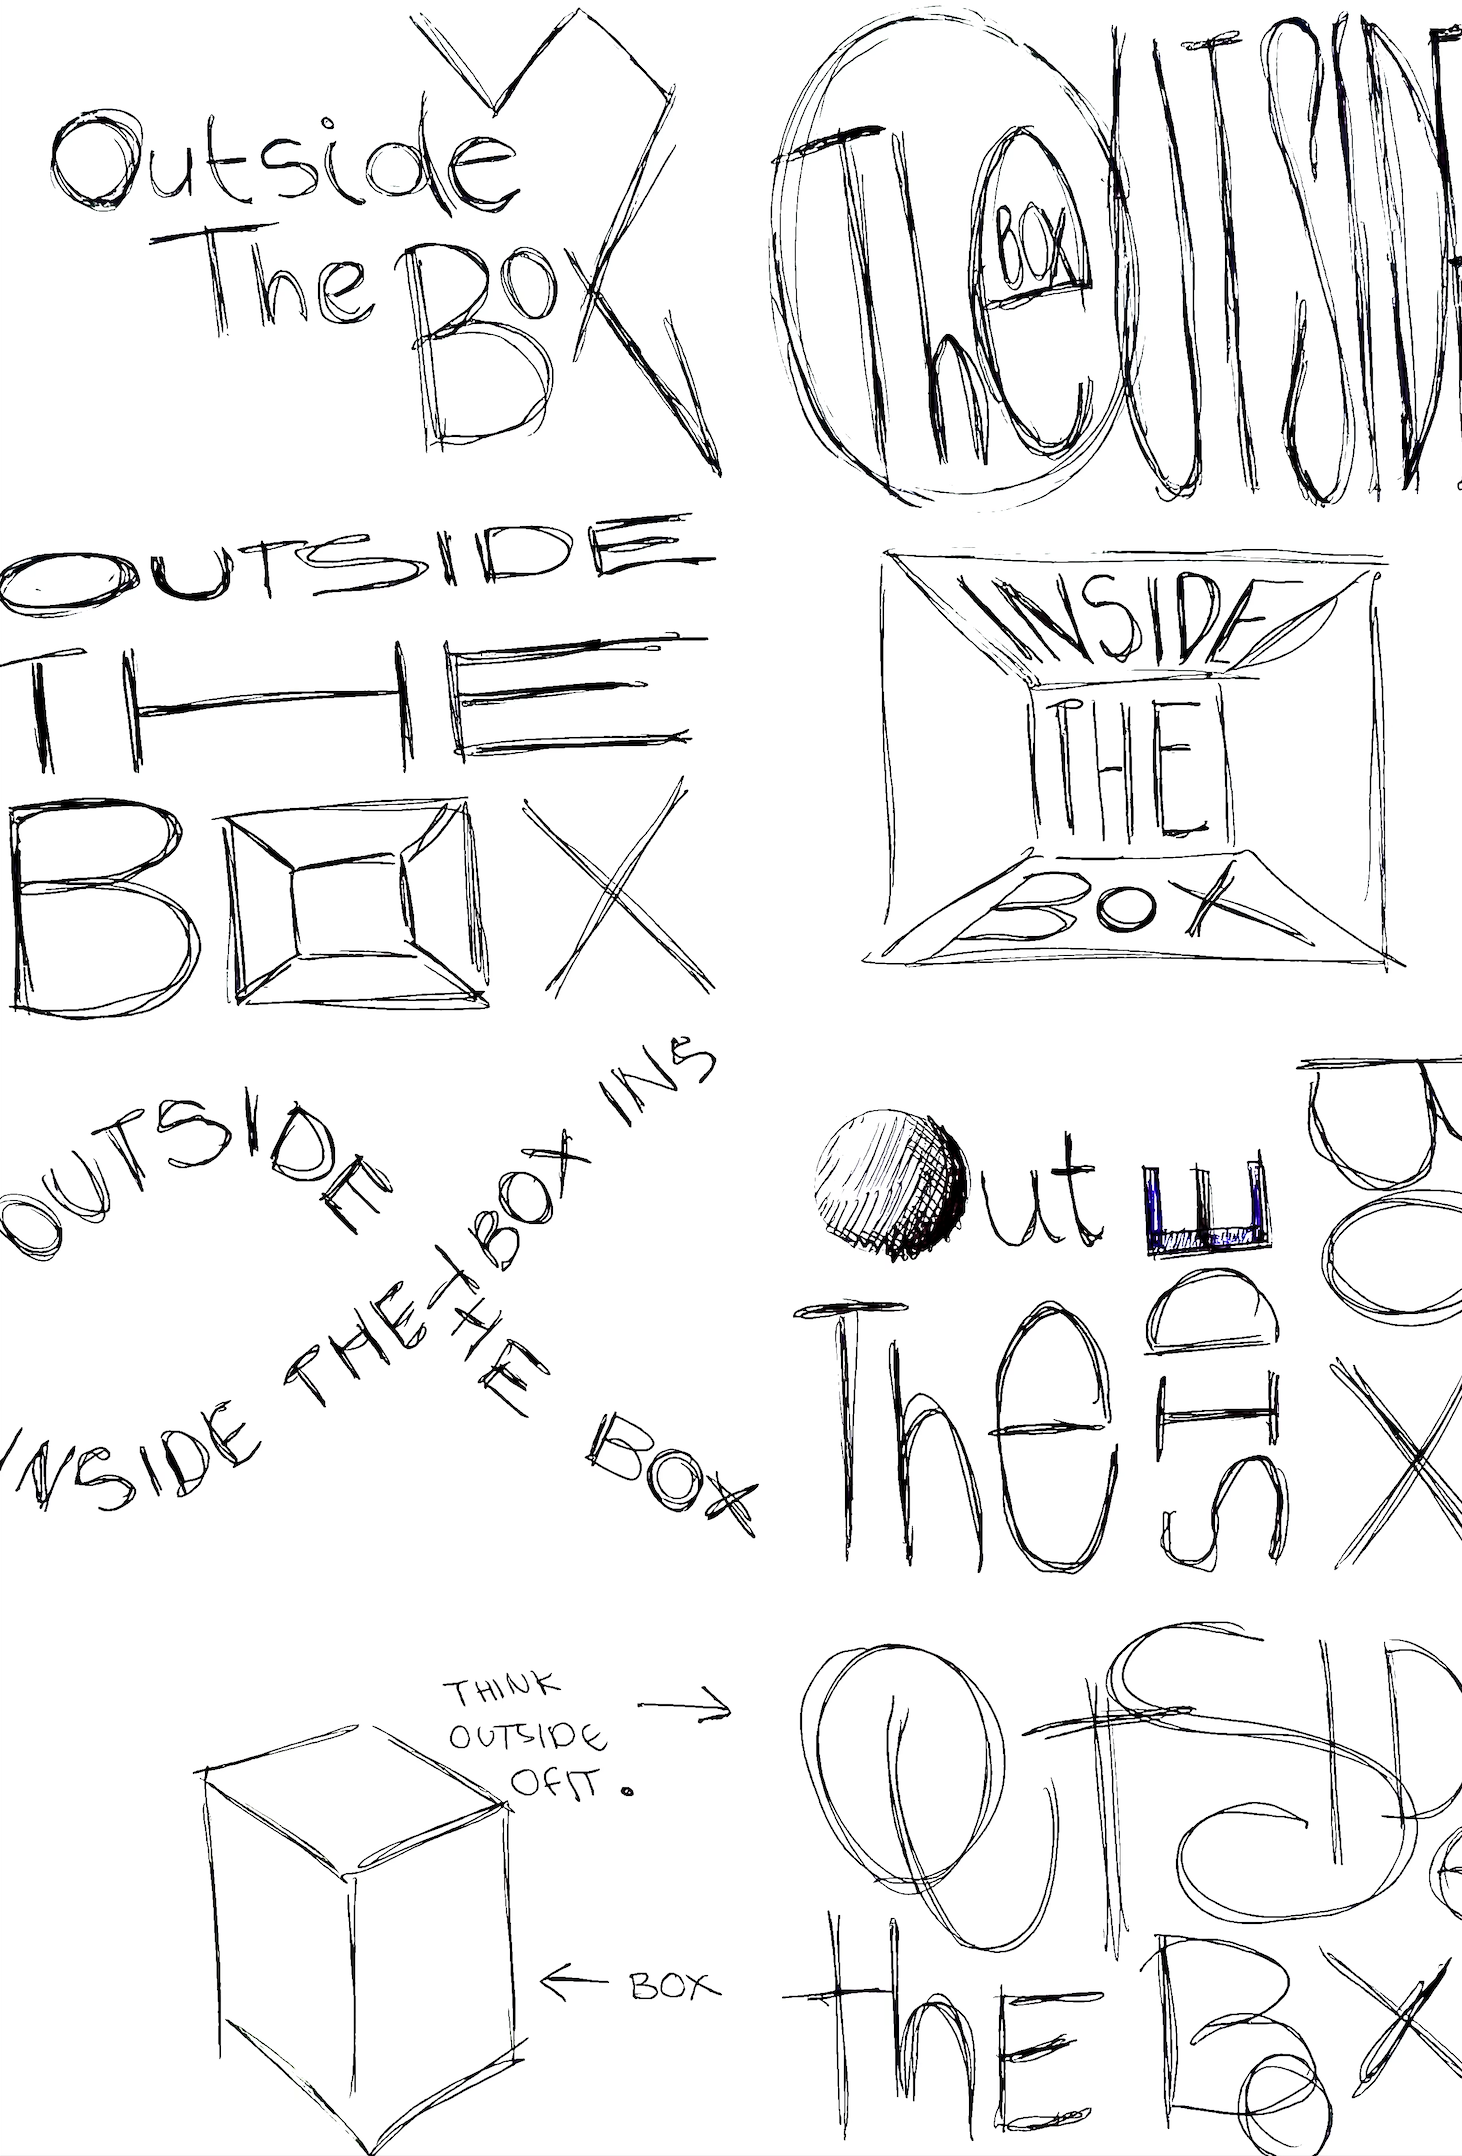 Outside
The BOX
OUTSIDE
The
BOX
OUTSIDE
THE
BOX
INSIDE
THE
BOX
OUTSIDE THE BOX
INSIDE THE BOX INS
Out
SIDE
The
BOX
THINK
OUTSIDE
OF IT.
BOX
OUTSIDe
thE BOX